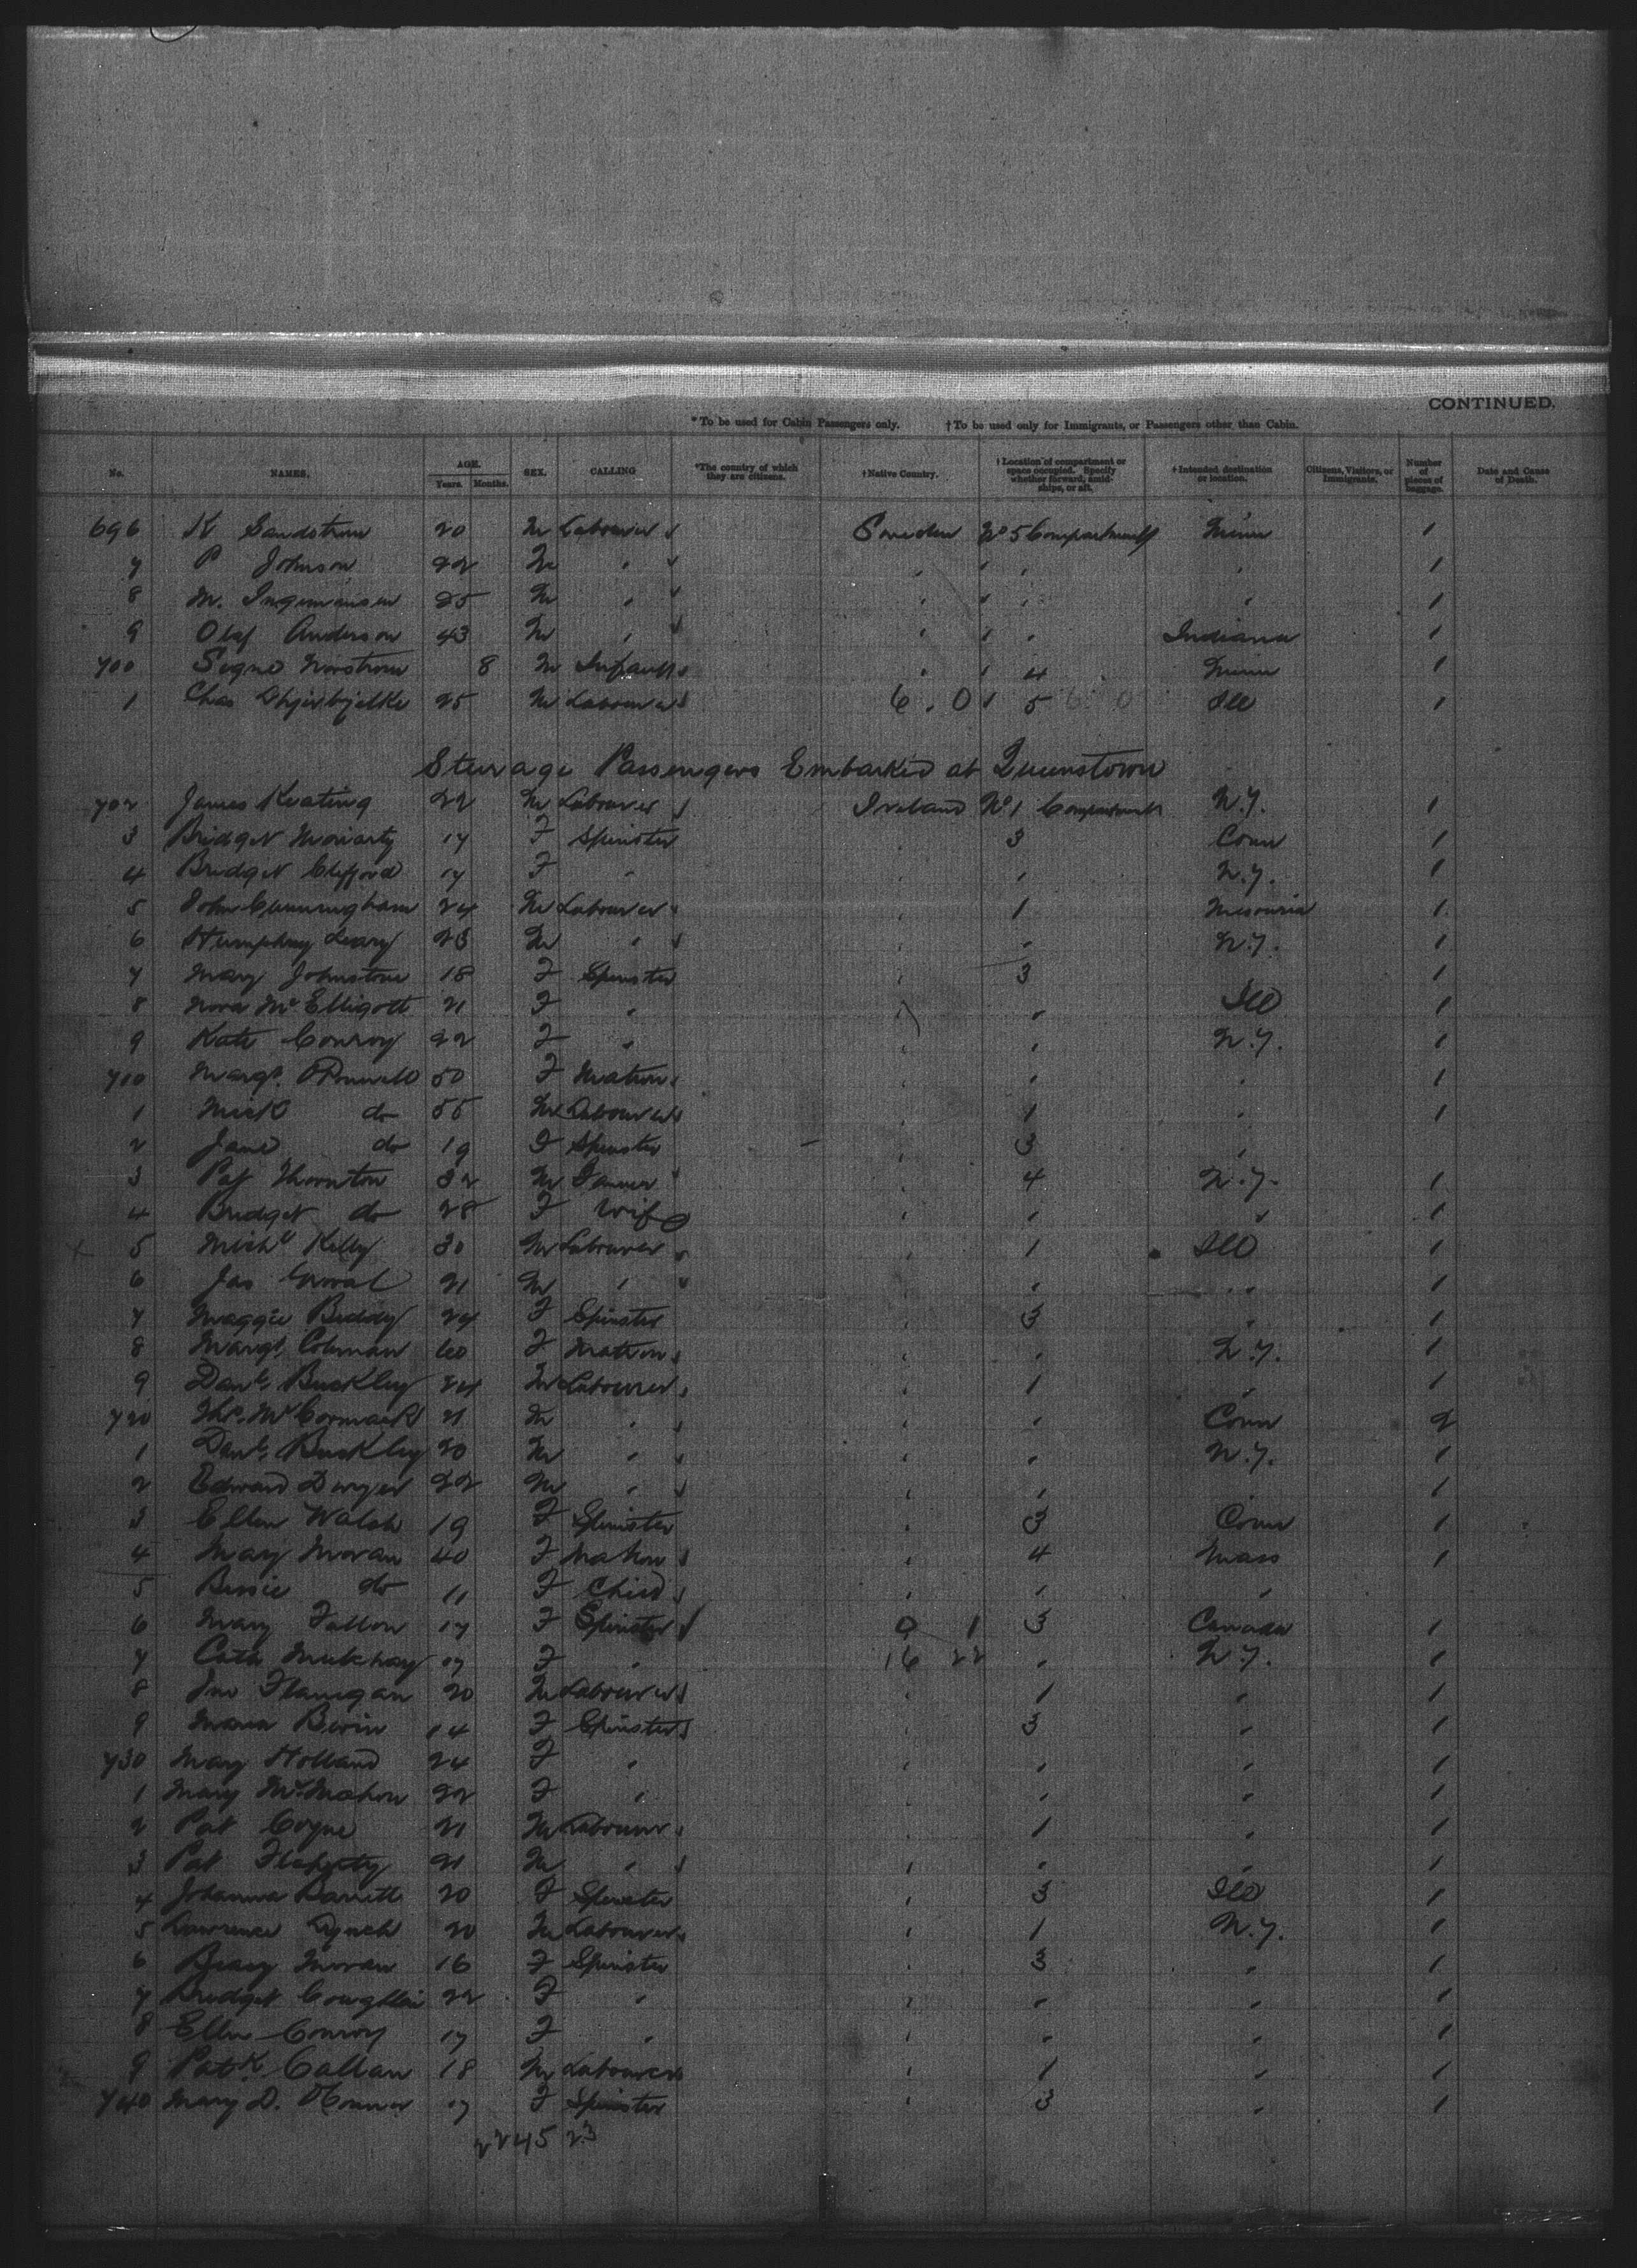 CONTINUED.
*To be used for Cabin Passengers only. †To be used only for Immigrants, or Passengers other than Cabin.
No. NAMES. AGE. Years. Months. SEX. CALLING *The country of which they are citizens. †Native Country. †Location of compartment or space occupied. Specify whether forward, amidships, or aft. †Intended destination or location. Citizens, Visitors, or Immigrants. Number of pieces of baggage. Date and Cause of Death.
696 K Sandstrom 20 M Labourer Sweden No 5 Compartment Minn 1
7 P Johnson 22 M " " " " " 1
8 M. 25 M " " " " " 1
9 Olaf Anderson 43 M " " " " Indiana 1
700 Norstrom 8 M Infant " " 4 Minn 1
1 Chas 25 M Labourer 6 . 0 1 5 6 0 Ill 1
Steerage Passengers Embarked at Queenstown
702 James Keating 22 M Labourer Ireland No 1 Compartment N.Y. 1
3 Bridget Moriarty 17 F Spinster " 3 Conn 1
4 Bridget Clifford 17 F " " " N.Y. 1
5 John Cunningham 24 M Labourer " 1 Missouria 1
6 Humphrey Leary 23 M " " " N.Y. 1
7 Mary Johnstone 18 F Spinster " 3 1
8 Nora McElligott 21 F " " " Ill 1
9 Kate Conroy 22 F " " " N.Y. 1
710 Margt. 50 F Matron " " " 1
1 Mick do 55 M Labourer " 1 " 1
2 Jane do 19 F Spinster " 3 "
3 Pat Thornton 32 M Farmer " 4 N.Y. 1
4 Bridget do 28 F Wife " " " 1
5 Michl Kelly 30 M Labourer " 1 Ill 1
6 Jas 21 M " " " " 1
7 Maggie 24 F Spinster " 3 " 1
8 Margt. Colman 60 F Matron " " N.Y. 1
9 Danl. Buckley 24 M Labourer " 1 " 1
720 Thos. McCormack 21 M " " " Conn 2
1 Danl. Buckley 20 M " " " N.Y. 1
2 Edward Dwyer 22 M " " " " 1
3 Ellen Walsh 19 F Spinster " 3 Conn 1
4 Mary Moran 40 F Matron " 4 Mass 1
5 Bessie do 11 F Child " " "
6 Mary Fallon 17 F Spinster 0 1 3 Canada 1
7 Cath 17 F " 16 22 " N.Y. 1
8 Jno Flanigan 20 M Labourer " 1 " 1
9 Maria 14 F Spinster " 3 " 1
730 Mary Holland 24 F " " " " 1
1 Mary McMahon 22 F " " " " 1
2 Pat Coyne 21 M Labourer " 1 " 1
3 Pat Flaherty 21 M " " " " 1
4 Johanna Barrett 20 F Spinster " 3 Ill 1
5 Lawrence Lynch 20 M Labourer " 1 N.Y. 1
6 Moran 16 F Spinster " 3 " 1
7 Bridget Coughlin 22 F " " " " 1
8 Ellen Conroy 17 F " " " " 1
9 Patk Callan 18 M Labourer " 1 " 1
740 Mary D. OConnor 17 F Spinster " 3 " 1
22 45 23